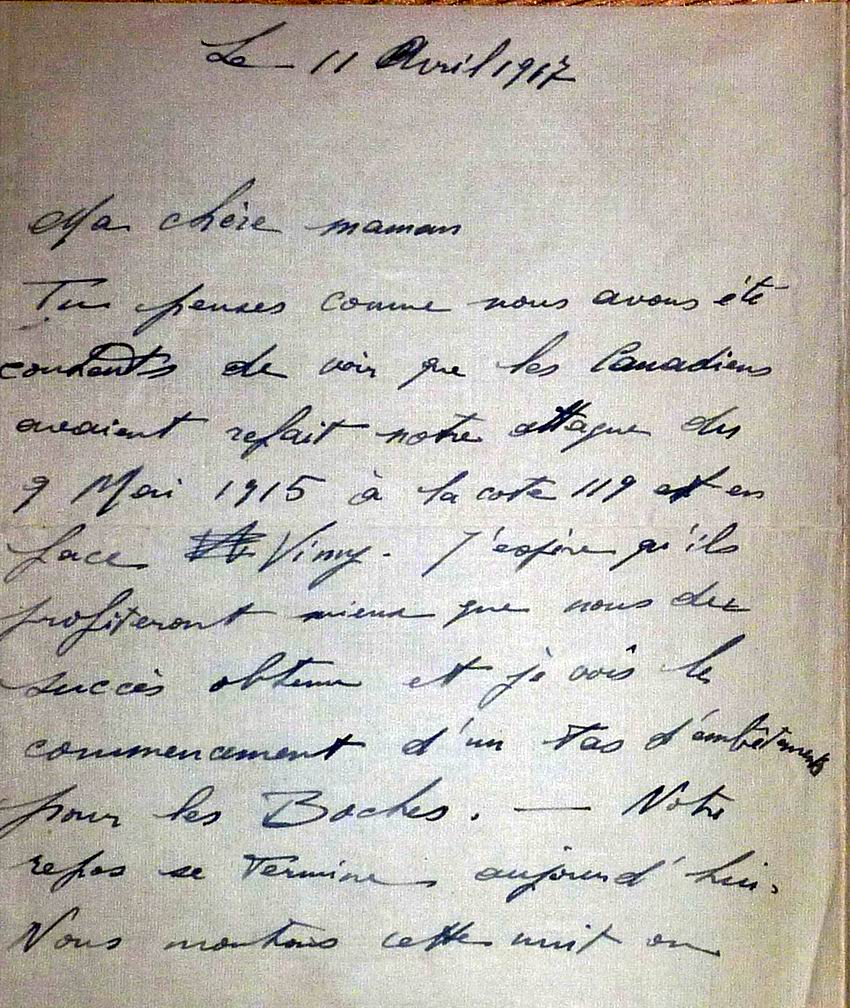 Le - 11 Avril 1917
Ma chère maman
Tu penses comme nous avons été
contents de voir que les Canadiens
avaient refait notre attaque du
9 Mai 1915 à la cote 119 et en
face Vimy. J'espère qu'ils
profiteront mieux que nous du
succès obtenu et je vois le
commencement d'un tas d'embêtements
pour les Boches. — Notre
repos se termine aujourd'hui.
Nous montons cette nuit ou